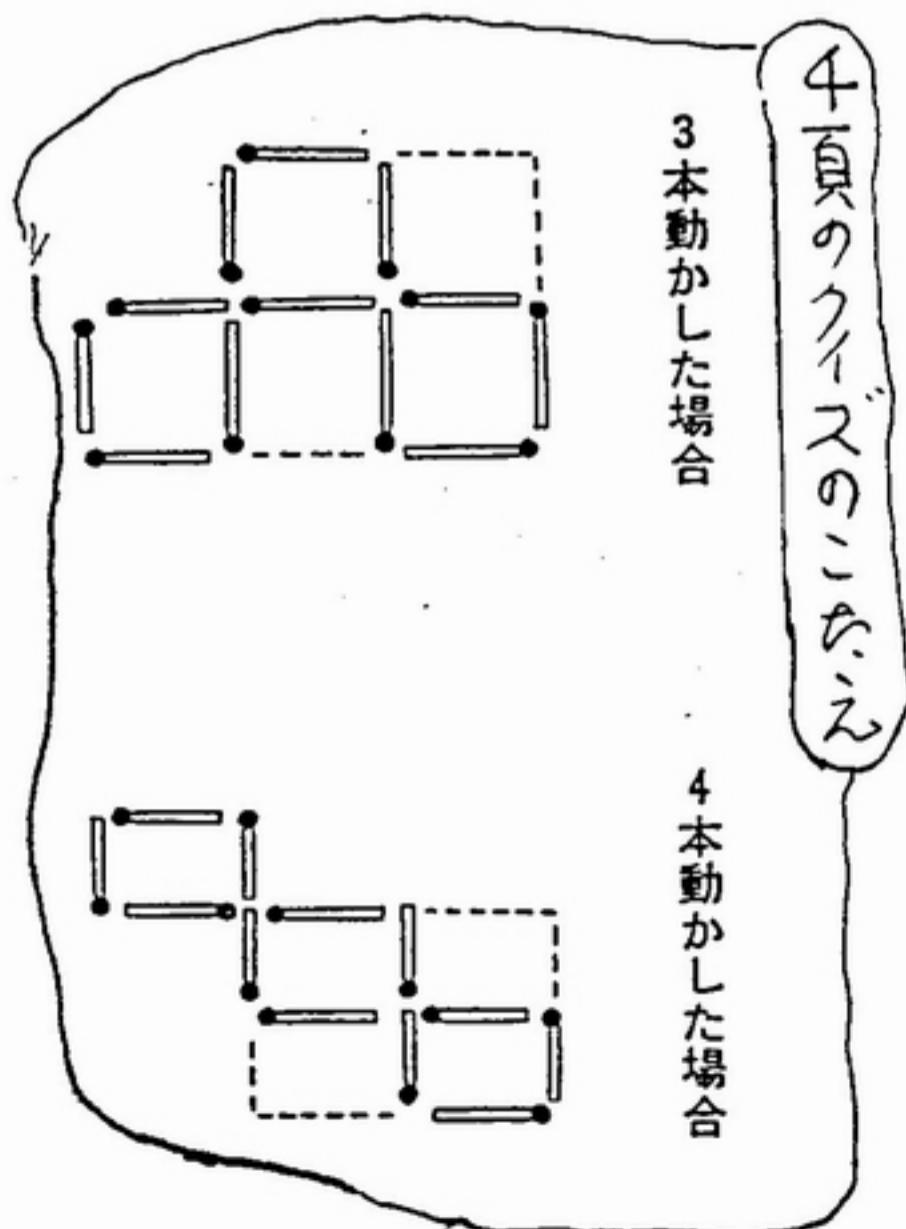 4頁のクイズのこたえ
3本動かした場合
4本動かした場合